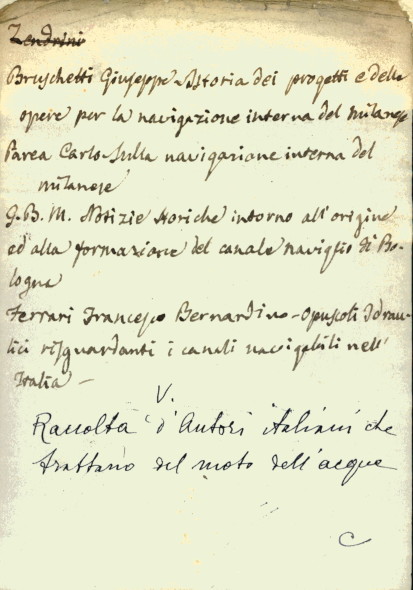 Zendrini
Bruschetti Giuseppe - Storia dei progetti e delle
opere per la navigazione interna del milanese
Parea Carlo - Sulla navigazione interna del
milanese
G. B. M. Notizie storiche intorno all'origine
ed alla formazione del canale naviglio di Bo-
logna
Ferrari Francesco Bernardino - Opuscoli Idrau-
lici risguardanti i canali navigabili nell'
Italia -
V.
Raccolta d'Autori italiani che
trattano del moto dell'acque
C